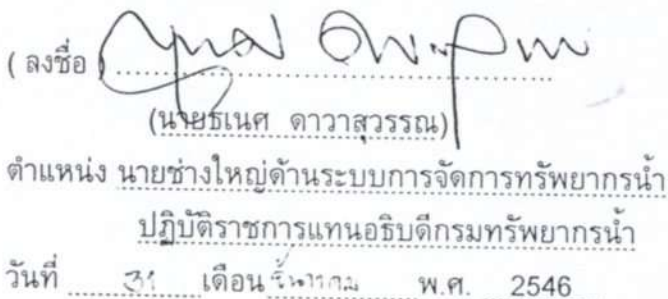 ( ลงชื่อ )
(นายธเนศ ดาวาสุวรรณ)
ตำแหน่ง นายช่างใหญ่ด้านระบบการจัดการทรัพยากรน้ำ
ปฏิบัติราชการแทนอธิบดีกรมทรัพยากรน้ำ
วันที่ 31 เดือน ธันวาคม พ.ศ. 2546